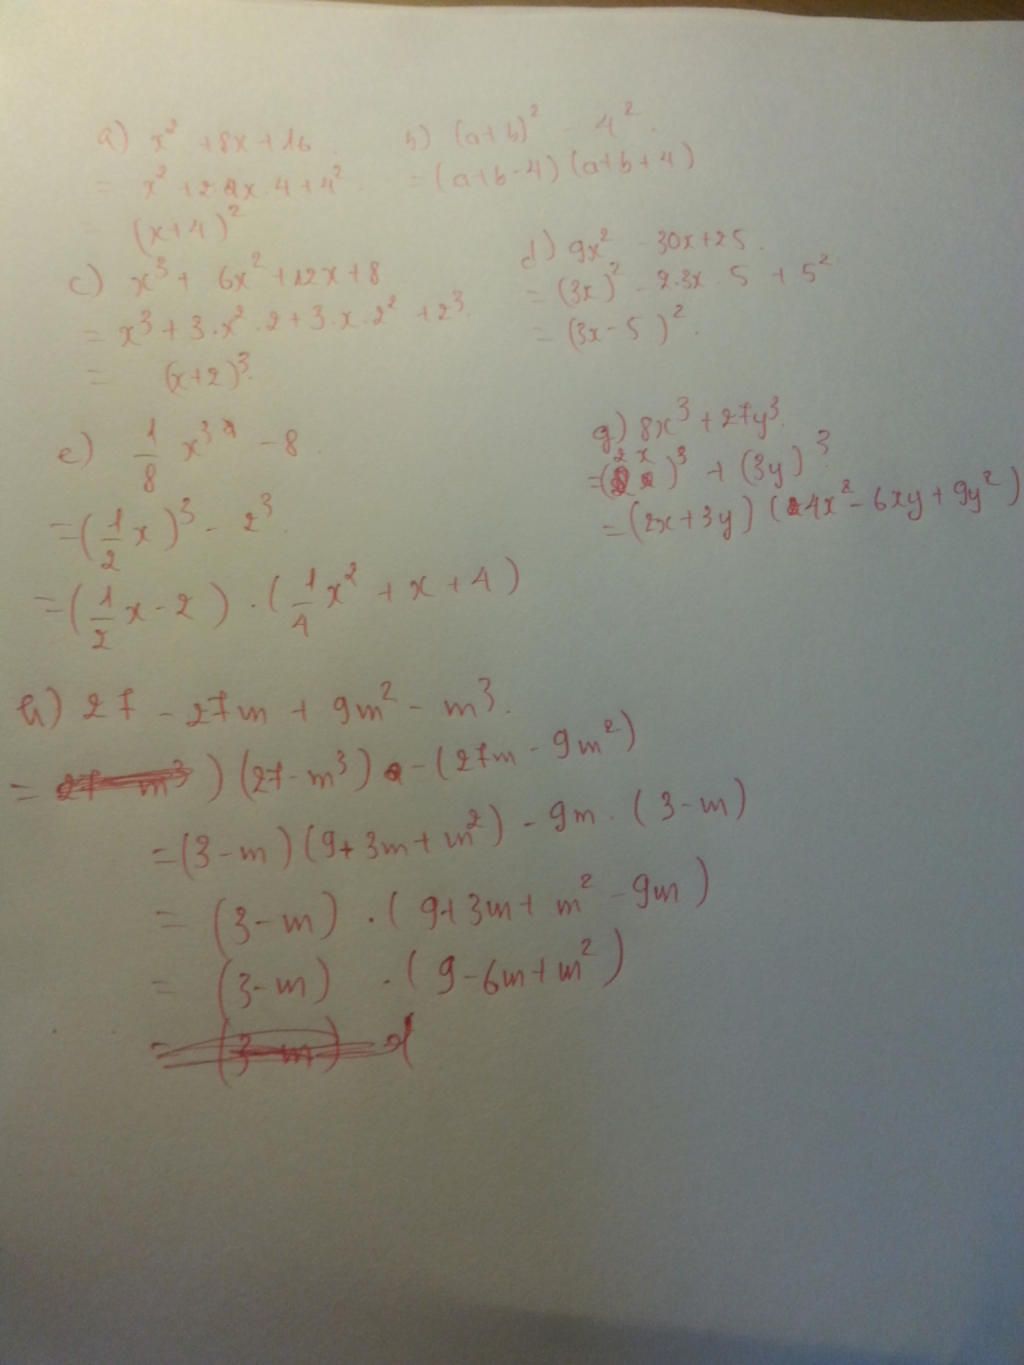 a) x² + 8x + 16
= x² + 2 x . 4 + 4².
= (x+4)²
b) (a+b)² - 4².
= (a+b-4) (a+b+4)
c) x³ + 6x² + 12x + 8
= x³ + 3.x².2 + 3.x.2² + 2³.
= (x+2)³.
d) 9x² - 30x + 25.
= (3x)² - 2.3x.5 + 5²
= (3x-5)².
e) 1/8 x³ - 8
= (1/2 x)³ - 2³.
= (1/2 x - 2) . (1/4 x² + x + 4)
g) 8x³ + 27y³
= (2x)³ + (3y)³
= (2x+3y) (4x² - 6xy + 9y²)
h) 27 - 27m + 9m² - m³.
= (27 - m³) - (27m - 9m²)
= (3-m) (9 + 3m + m²) - 9m . (3-m)
= (3-m) . (9 + 3m + m² - 9m)
= (3-m) . (9 - 6m + m²)